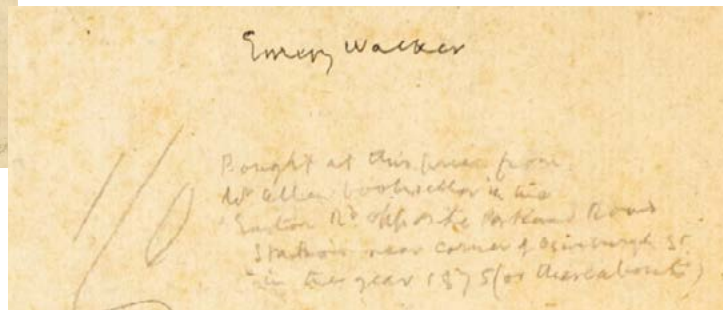 Emery Walker
1/0
Bought at this price from
Mr Allen bookseller in the
Euston Rd opposite Portland Road
Station near corner of Osnaburgh St
in the year 1875 (or thereabouts)